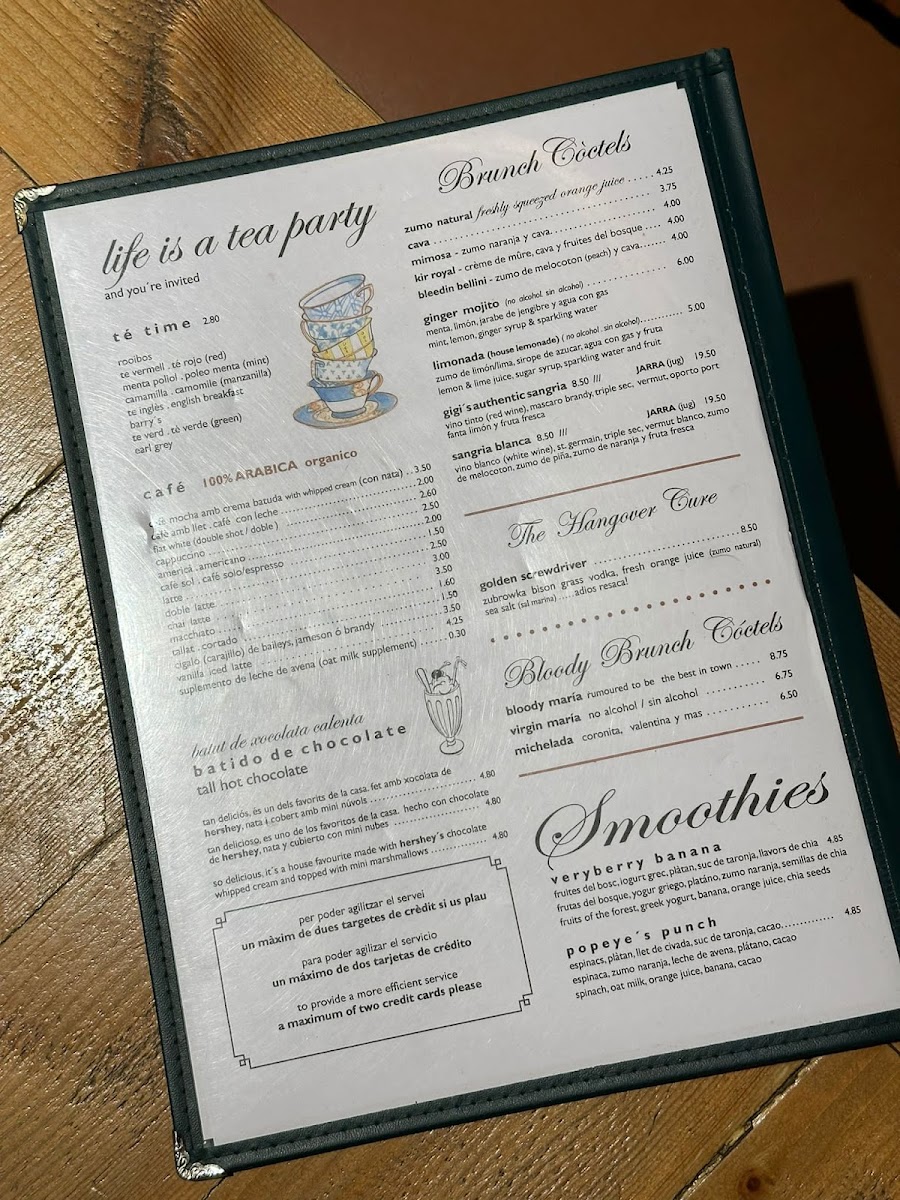 life is a tea party
and you're invited
té time 2.80
rooibos
te vermell . té rojo (red)
menta poliol . poleo menta (mint)
camamilla . camomile (manzanilla)
te inglès . english breakfast
barry's
te verd . té verde (green)
earl grey
café 100% ARABICA organico
cafè mocha amb crema batuda with whipped cream (con nata) .. 3.50
cafè amb llet . café con leche ........ 2.00
flat white (double shot / doble) ........ 2.60
cappuccino ........ 2.50
america . americano ........ 2.00
café sol . café solo/espresso ........ 1.50
latte ........ 2.50
doble latte ........ 3.00
chai latte ........ 3.50
macchiato ........ 1.60
tallat . cortado ........ 1.50
cigalo (carajillo) de baileys, jameson ó brandy ........ 3.50
vanilla iced latte ........ 4.25
suplemento de leche de avena (oat milk supplement) ..... 0.30
batut de xocolata calenta
batido de chocolate
tall hot chocolate
tan deliciós, és un dels favorits de la casa. fet amb xocolata de
hershey, nata i cobert amb mini núvols ........ 4.80
tan delicioso, es uno de los favoritos de la casa. hecho con chocolate
de hershey, nata y cubierto con mini nubes ........ 4.80
so delicious, it's a house favourite made with hershey's chocolate
whipped cream and topped with mini marshmallows ........ 4.80
per poder agilitzar el servei
un màxim de dues targetes de crèdit si us plau
para poder agilizar el servicio
un máximo de dos tarjetas de crédito
to provide a more efficient service
a maximum of two credit cards please
Brunch Còctels
zumo natural freshly squeezed orange juice ..... 4.25
cava ........ 3.75
mimosa - zumo naranja y cava ........ 4.00
kir royal - crème de mûre, cava y fruites del bosque .... 4.00
bleedin bellini - zumo de melocoton (peach) y cava ...... 4.00
ginger mojito (no alcohol. sin alcohol) ........ 6.00
menta, limón, jarabe de jengibre y agua con gas
mint, lemon, ginger syrup & sparkling water
limonada (house lemonade) ( no alcohol . sin alcohol) ........ 5.00
zumo de limón/lima, sirope de azucar, agua con gas y fruta
lemon & lime juice, sugar syrup, sparkling water and fruit
gigi's authentic sangria 8.50 /// JARRA (jug) 19.50
vino tinto (red wine), mascaro brandy, triple sec, vermut, oporto port
fanta limón y fruta fresca
sangria blanca 8.50 /// JARRA (jug) 19.50
vino blanco (white wine), st. germain, triple sec, vermut blanco, zumo
de melocoton, zumo de piña, zumo de naranja y fruta fresca
The Hangover Cure
golden screwdriver ........ 8.50
zubrowka bison grass vodka, fresh orange juice (zumo natural)
sea salt (sal marina) .....adios resaca!
Bloody Brunch Cóctels
bloody maría rumoured to be the best in town ..... 8.75
virgin maría no alcohol / sin alcohol ........ 6.75
michelada coronita, valentina y mas ........ 6.50
Smoothies
veryberry banana 4.85
fruites del bosc, iogurt grec, plàtan, suc de taronja, llavors de chia
frutas del bosque, yogur griego, platáno, zumo naranja, semillas de chia
fruits of the forest, greek yogurt, banana, orange juice, chia seeds
popeye's punch
espinacs, plátan, llet de civada, suc de taronja, cacao ........ 4.85
espinaca, zumo naranja, leche de avena, plátano, cacao
spinach, oat milk, orange juice, banana, cacao